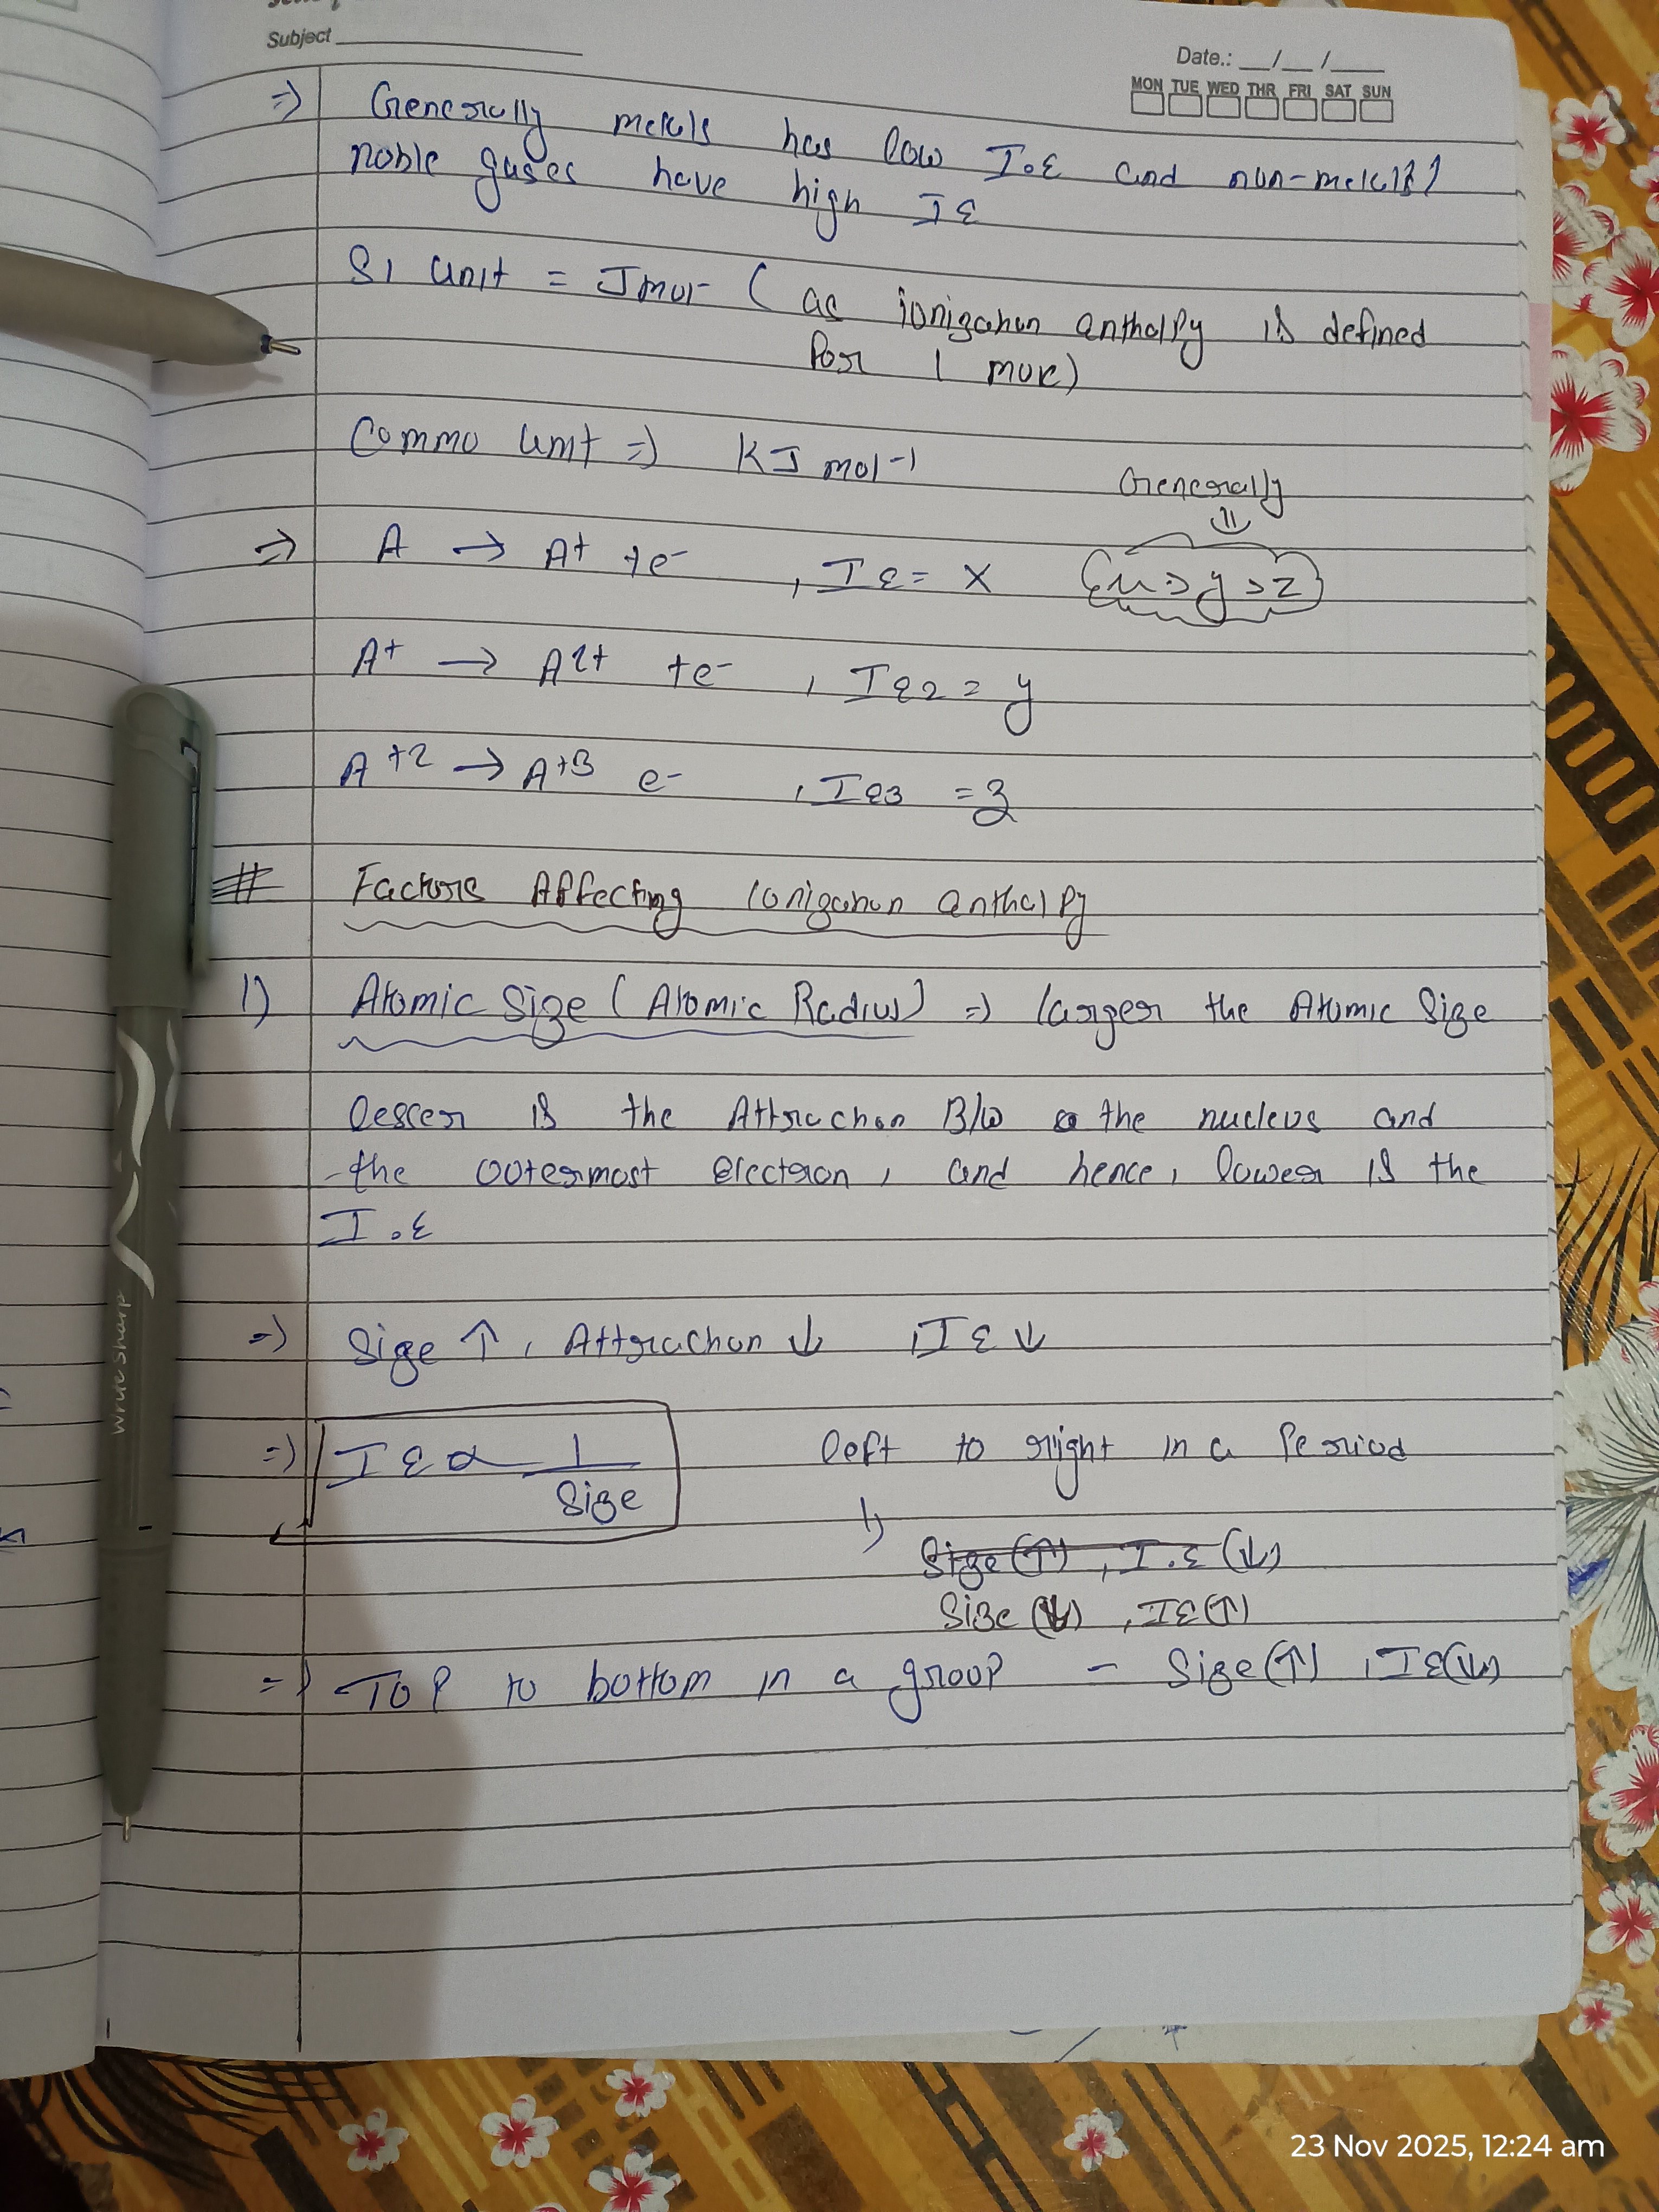 Subject
Date.: __/__/____
MON TUE WED THR FRI SAT SUN
=) Generally metals has low I.E and non-metals /
noble gases have high IE
SI unit = Jmol- ( as ionization enthalpy is defined
for 1 mole)
Commo unit => KJ mol-1
Generally
=> A → A+ +e- , IE = x
A+ → A2+ +e- , IE2 = y
A+2 → A+3 e- , IE3 = z
# Factors Affecting Ionization enthalpy
1) Atomic Size (Atomic Radius) => larger the Atomic Size
lesser is the Attraction B/w the nucleus and
the outermost electron, and hence, lower is the
I.E
=) Size ↑, Attraction ↓ , IE ↓
=) IE α 1/Size
left to right in a Period
Size (↑) , I.E (↓)
Size (↓) , IE (↑)
=) Top to bottom in a group - Size(↑) , IE(↓)
write sharp
23 Nov 2025, 12:24 am